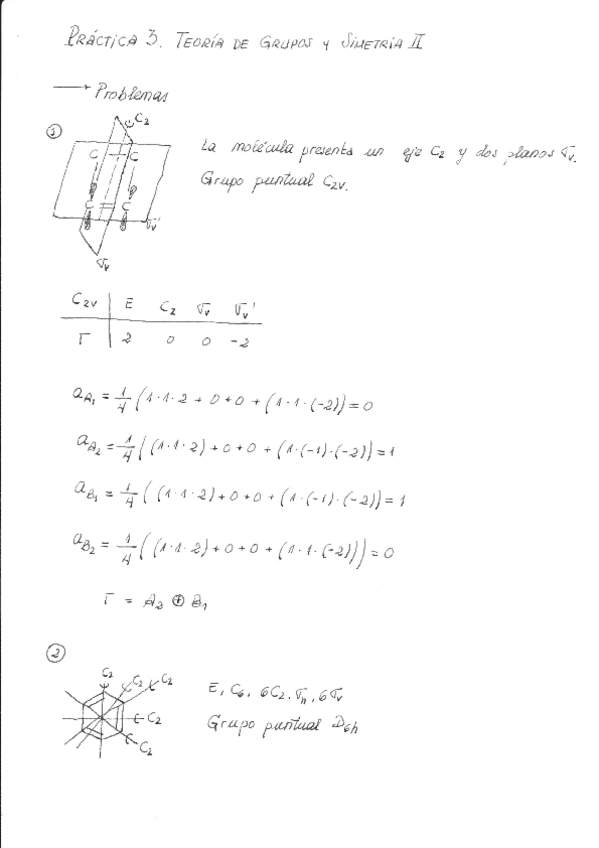 PRÁCTICA 3. TEORÍA DE GRUPOS Y SIMETRÍA II
→ Problemas
①
C₂
C C
C = C
σv'
σv
La molécula presenta un eje C₂ y dos planos σv.
Grupo puntual C₂v.
C₂v | E C₂ σv σv'
Γ | 2 0 0 -2
aA₁ = 1/4 (1·1·2 + 0+0 + (1·1·(-2)) = 0
aA₂ = 1/4 ((1·1·2) + 0+0 + (1·(-1)·(-2)) = 1
aB₁ = 1/4 ((1·1·2) + 0+0 + (1·(-1)·(-2)) = 1
aB₂ = 1/4 ((1·1·2) + 0+0 + (1·1·(-2))) = 0
Γ = A₂ ⊕ B₁
②
C₂
C₂ C₂
C₂
C₂
E, C₆, 6C₂, σh, 6σv
Grupo puntual D₆h